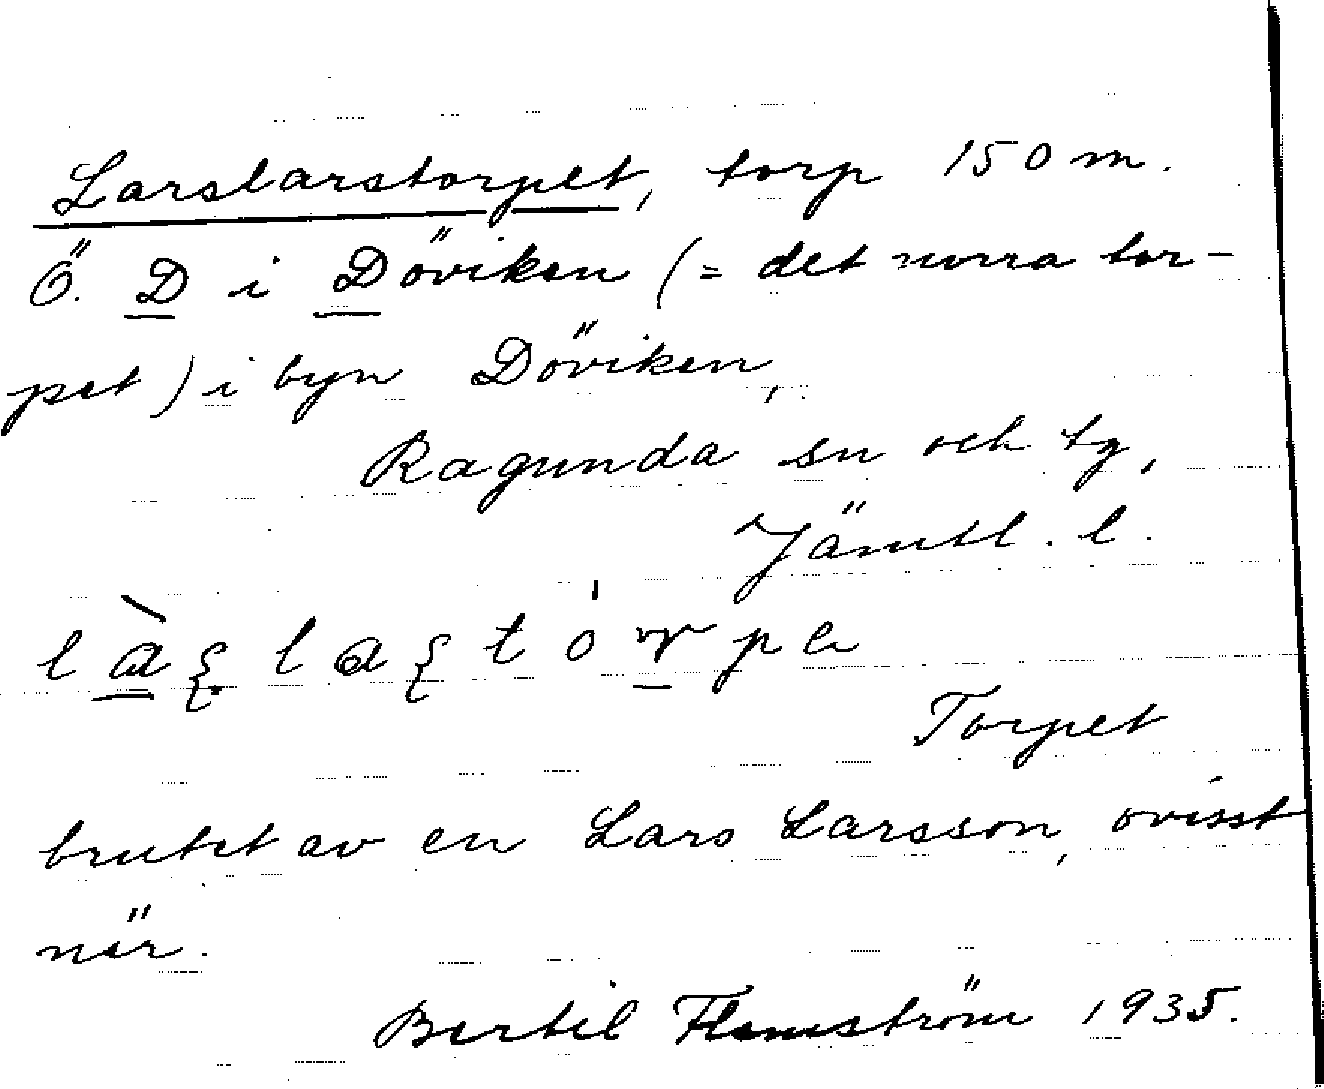 Larslarstorpet, torp 150 m.
Ö. D i Döviken (= det norra tor-
pet) i byn Döviken,
Ragunda sn och tg,
Jämtl. l.
Torpet
brutet av en Lars Larsson, ovisst
när.
Bertil Flemström 1935.